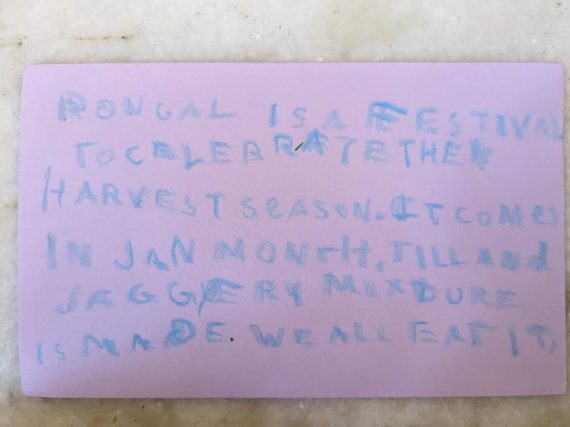 PONGAL IS A FESTIVAL
TO CELEBRATE THE
HARVEST SEASON. IT COMES
IN JAN MONTH. TILL AND
JAGGERY MUXDURE
IS MADE. WE ALL EAT IT.